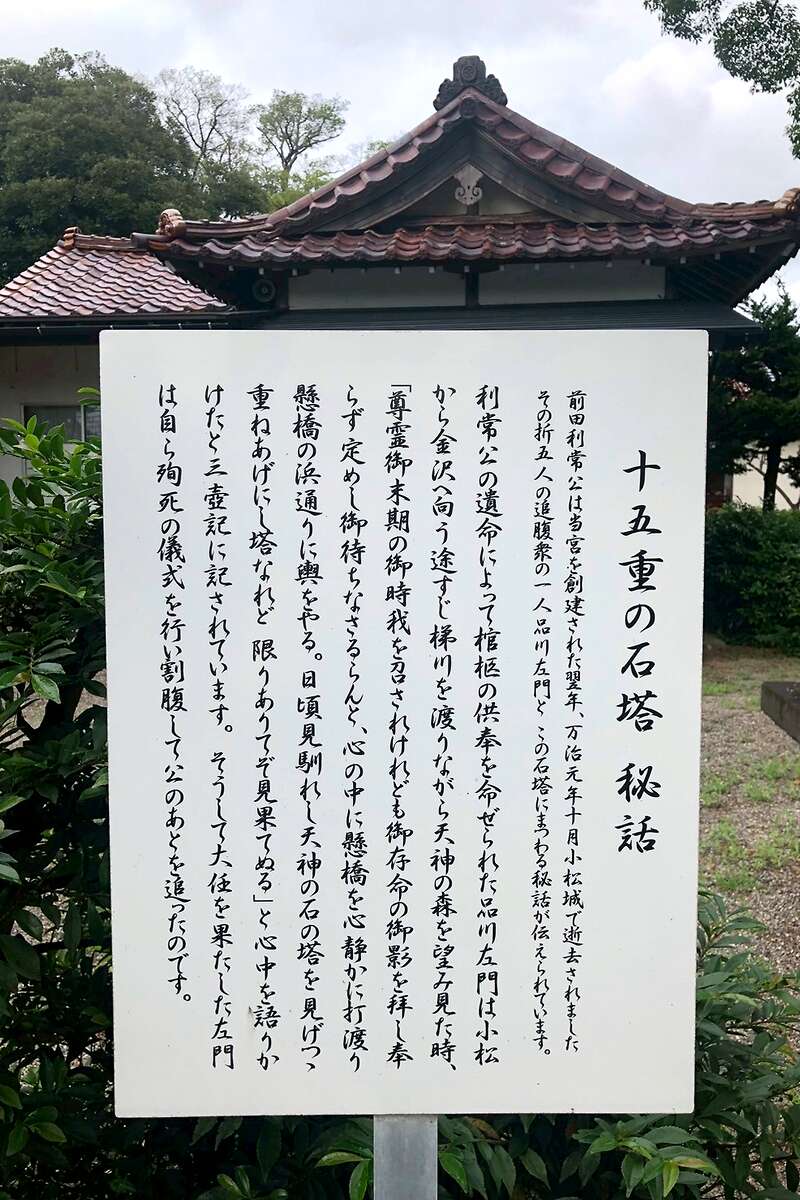 十五重の石塔 秘話
前田利常公は当宮を創建された翌年、万治元年十月小松城で逝去されました
その折五人の追腹衆の一人品川左門と この石塔にまつわる秘話が伝えられています。
利常公の遺命によって棺柩の供奉を命ぜられた品川左門は小松
から金沢へ向う途すじ梯川を渡りながら天神の森を望み見た時、
「尊霊御末期の御時我を召されけれども御存命の御影を拝し奉
らず定めし御待ちなさるらんと、心の中に懸橋を心静かに打渡り
懸橋の浜通りに輿をやる。日頃見馴れし天神の石の塔を見げつゝ
重ねあげにし塔なれど 限りありてぞ見果てぬる」と心中を語りか
けたと三壺記に記されています。そうして大任を果たした左門
は自ら殉死の儀式を行い割腹して公のあとを追ったのです。